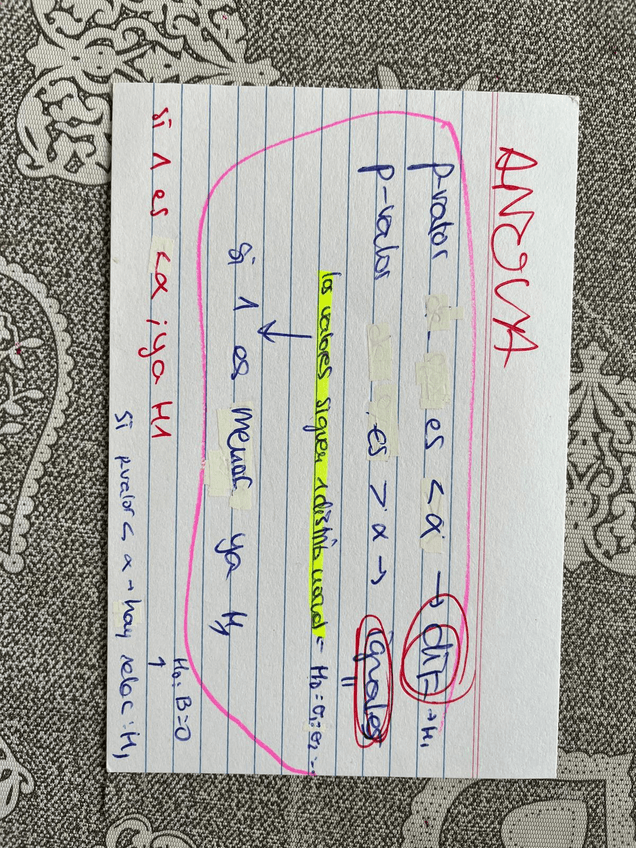 ANOVA
p-valor es < α → dif → H1
p-valor es > α → iguales
los valores siguen 1 distrib normal - H0 = σ1 = σ2 -
si 1 es menor ya H1
H0: B=0
si 1 es < α ; ya H1
si pvalor < α → hay relac: H1